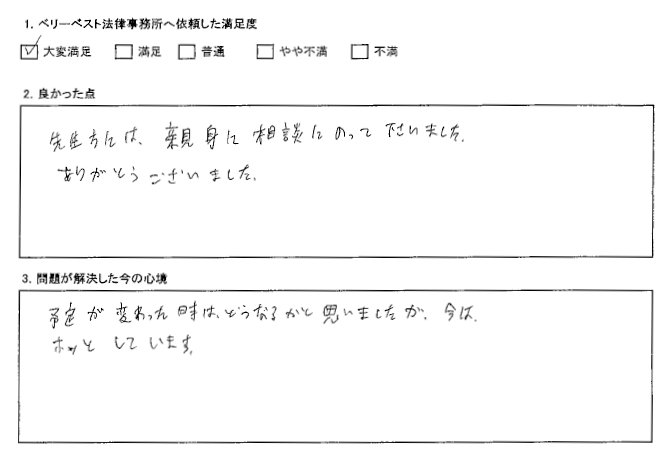 1. ベリーベスト法律事務所へ依頼した満足度
☑ 大変満足 □ 満足 □ 普通 □ やや不満 □ 不満
2. 良かった点
先生方には、親身に相談にのって下さいました。
ありがとうございました。
3. 問題が解決した今の心境
予定が変わった時は、どうなるかと思いましたが、今は、
ホッとしています。